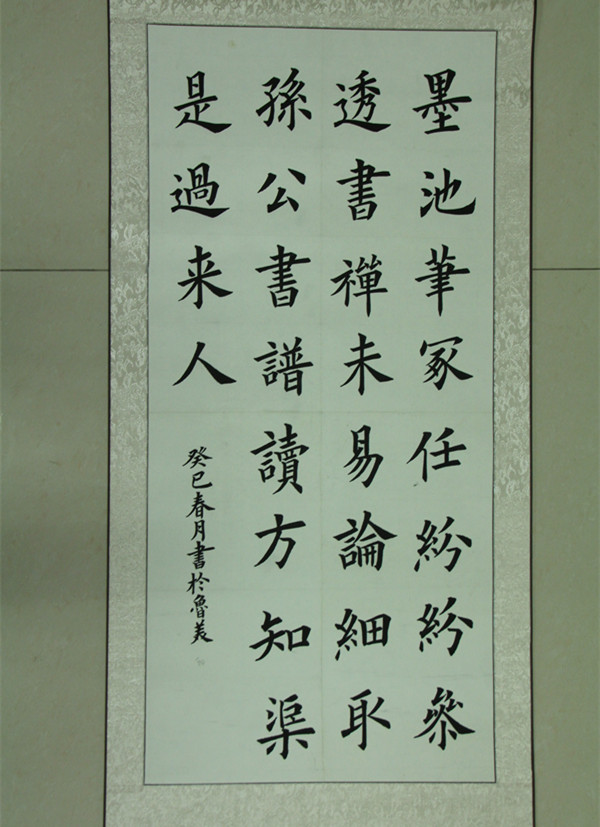 墨池筆冢任紛紛參
透書禪未易論細取
孫公書譜讀方知渠
是過来人
癸巳春月書於魯美